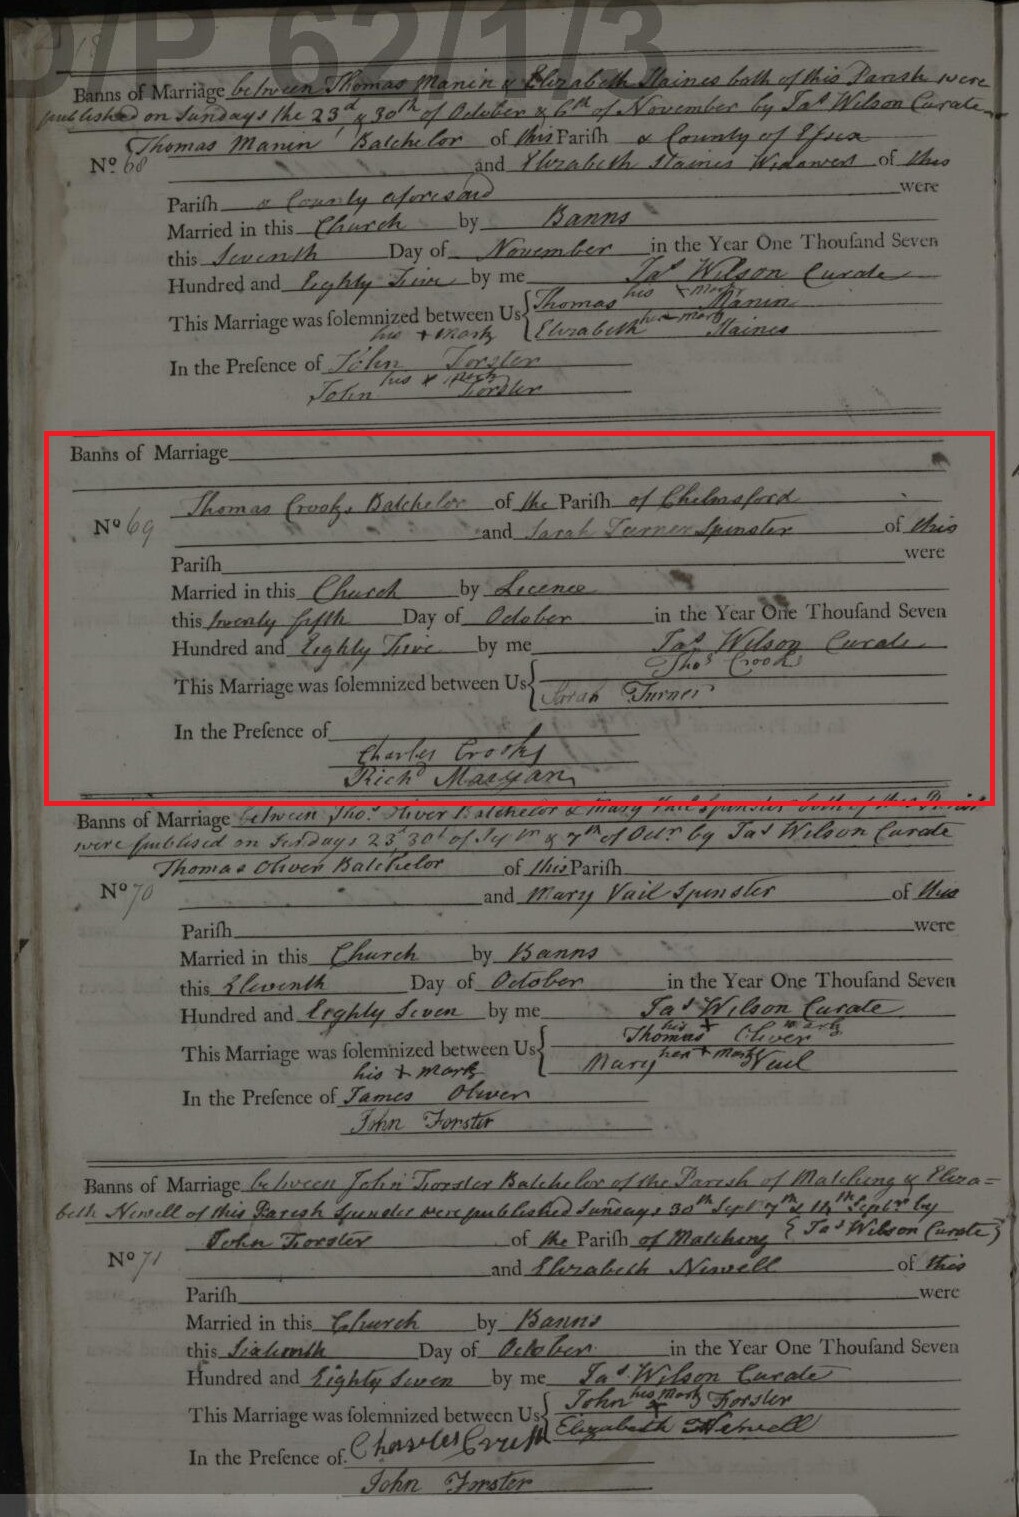 D/P 62/1/3
18
Banns of Marriage between Thomas Manin & Elizabeth Staines both of this Parish were
published on Sundays the 23d & 30th of October & 6th of November by Jas Wilson Curate
Thomas Manin Batchelor of this Parish & County of Essex
No. 68
and Elizabeth Staines Widower of this
Parish & County aforesaid were
Married in this Church by Banns
this Seventh Day of November in the Year One Thousand Seven
Hundred and Eighty Five by me Jas Wilson Curate
This Marriage was solemnized between Us Thomas his + Mark Manin
Elizabeth her + Mark Staines
his + Mark
In the Presence of John Forster
John his + Mark Forster
Banns of Marriage
Thomas Crooks Batchelor of the Parish of Chelmsford
No 69
and Sarah Turner Spinster of this
Parish were
Married in this Church by Licence
this twenty fifth Day of October in the Year One Thousand Seven
Hundred and Eighty Five by me Jas Wilson Curate
This Marriage was solemnized between Us Thos Crooks
Sarah Turner
In the Presence of
Charles Crooks
Richd Maryan
Banns of Marriage between Thos Oliver Batchelor & Mary Vail Spinster both of this Parish
were publised on Sundays 23d 30th of Sepbr & 7th of Octr by Jas Wilson Curate
Thomas Oliver Batchelor of this Parish
No 70
and Mary Vail Spinster of this
Parish were
Married in this Church by Banns
this Eleventh Day of October in the Year One Thousand Seven
Hundred and Eighty Seven by me Jas Wilson Curate
This Marriage was solemnized between Us Thomas his + Mark Oliver
Mary her + Mark Vail
his + Mark
In the Presence of James Oliver
John Forster
Banns of Marriage between John Forster Batchelor of the Parish of Matching & Eliza=
beth Newell of this Parish Spinster were published Sundays 30th Sept 7th & 14th Septbr by
John Forster of the Parish of Matching {Jas Wilson Curate}
No 71
and Elizabeth Newell of this
Parish were
Married in this Church by Banns
this Sixteenth Day of October in the Year One Thousand Seven
Hundred and Eighty Seven by me Jas Wilson Curate
This Marriage was solemnized between Us John his Mark + Forster
Elizabeth Newell
In the Presence of Charles
John Forster